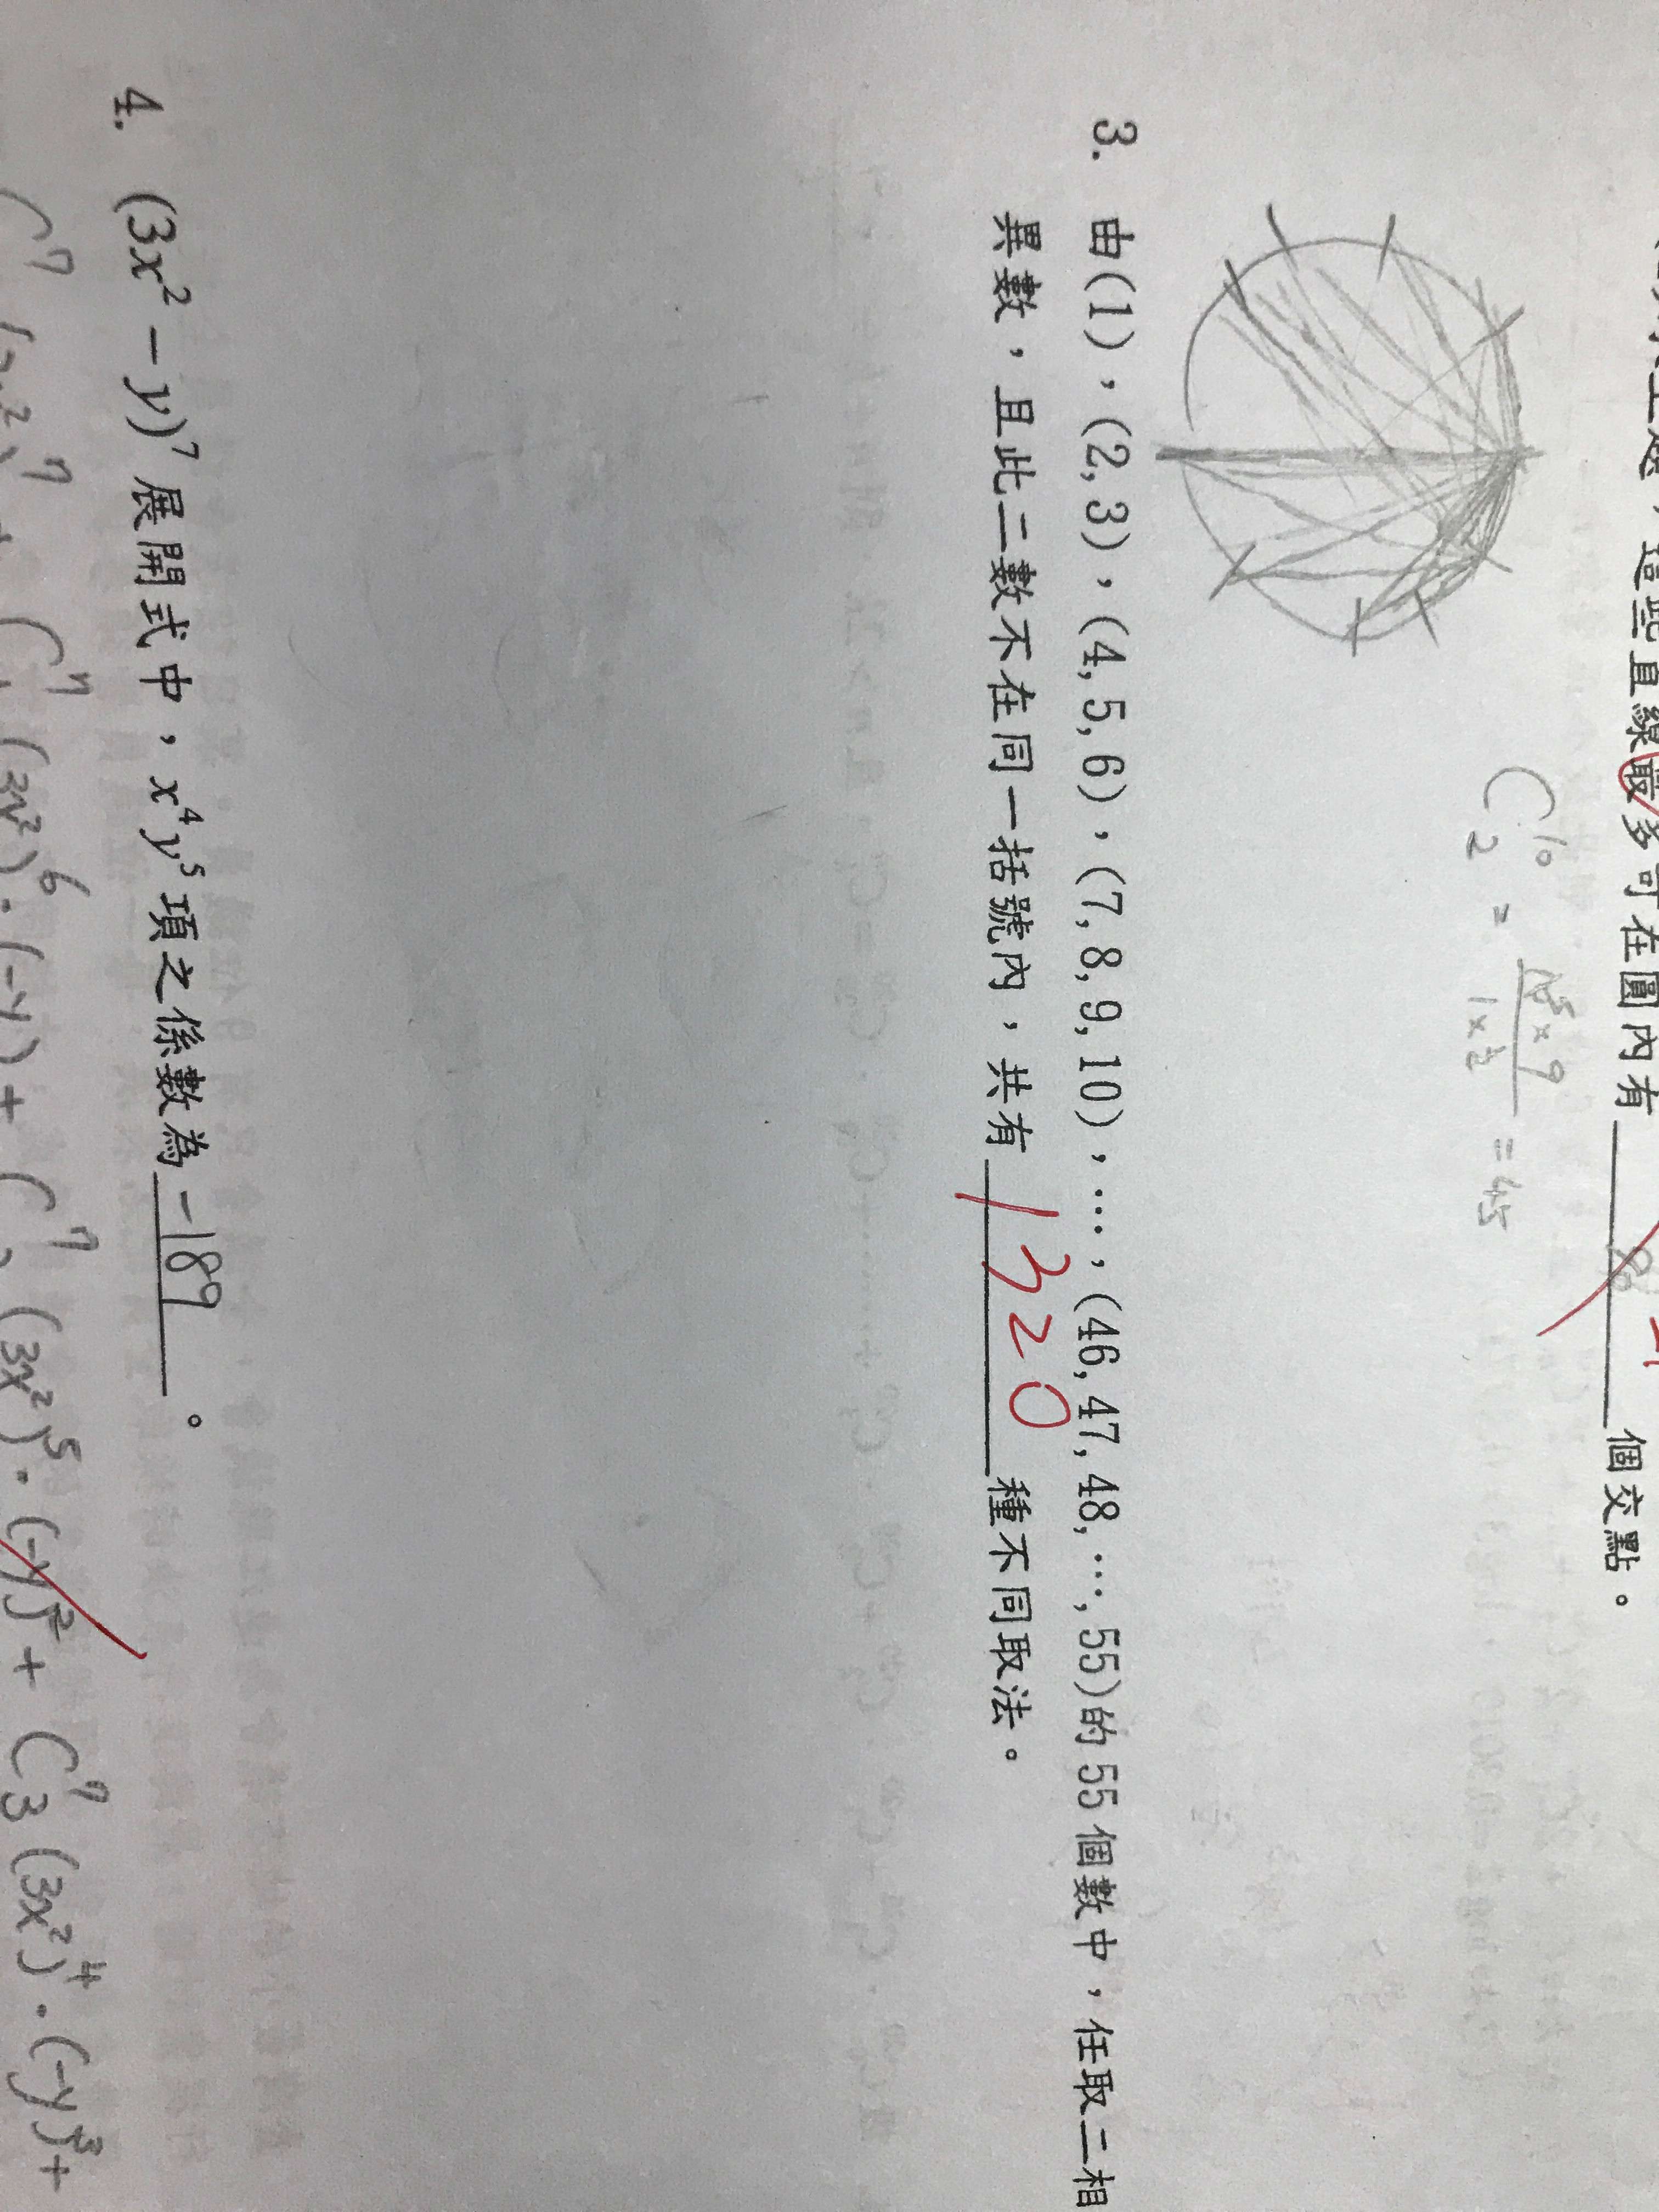 這些直線最多可在圓內有 個交點。
C¹⁰₂ = 10×9 / 1×2 = 45
3. 由(1),(2,3),(4,5,6),(7,8,9,10),…,(46,47,48,…,55)的55個數中,任取二相
異數,且此二數不在同一括號內,共有1320種不同取法。
4. (3x²-y)⁷展開式中,x⁴y⁵項之係數為-189。
(3x²)⁶·(-y)+ C⁷ (3x²)⁵·(-y)²+ C⁷₃(3x²)⁴·(-y)³+